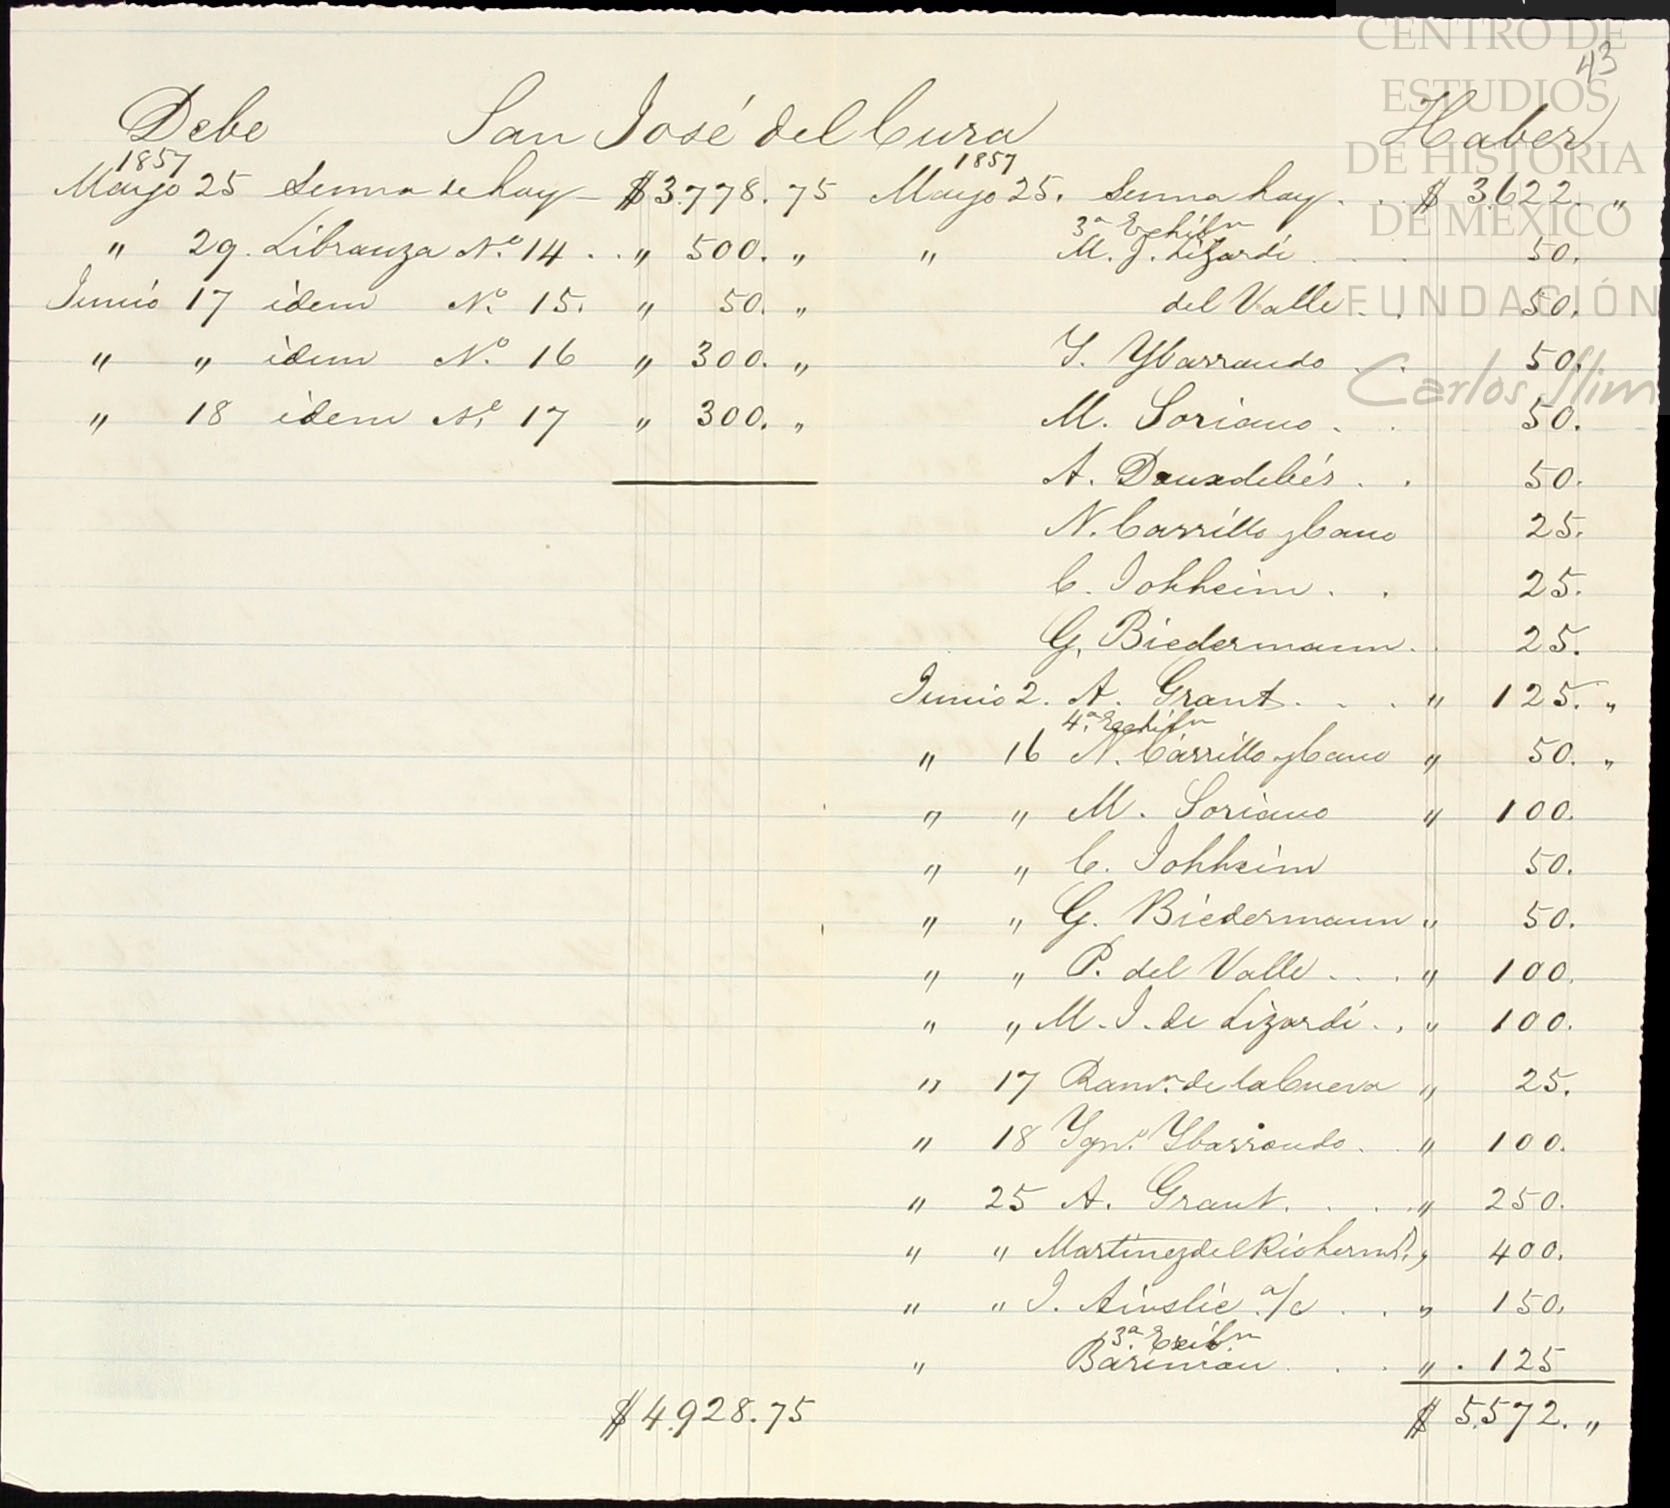 CENTRO DE
ESTUDIOS
DE HISTORIA
DE MÉXICO
FUNDACIÓN
Carlos Slim
43
Debe San José del Cura Haber
1857 1857
Mayo 25 Suma de hoy $ 3.778.75 Mayo 25. Suma hoy . . $ 3.622. „
3ª
„ 29. Libranza No. 14 . . „ 500. „ „ M. J. Lizardi . . . 50.
Junio 17 idem No. 15. „ 50. „ del Valle . . 50.
„ „ idem No. 16 „ 300. „ Y. Ybarrondo . . 50.
„ 18 idem No. 17 „ 300. „ M. Soriano . . 50.
A. Dauxdebés . . 50.
N. Carrillo y Cano 25.
C. Johheim . . 25.
G. Biedermann . . 25.
Junio 2. A. Grant . . . „ 125. „
4ª
„ 16 N. Carrillo y Cano „ 50. „
„ „ M. Soriano „ 100.
„ „ C. Johheim 50.
„ „ G. Biedermann „ 50.
„ „ P. del Valle . . . „ 100.
„ „ M. J. de Lizardi . . „ 100.
„ 17 Ramn. de la Cueva „ 25.
„ 18 Ygno. Ybarrondo . . „ 100.
„ 25 A. Grant . . . . „ 250.
„ „ Martinez del Rio herms. „ 400.
„ „ J. Ainslie a/c . . „ 150.
3ª Exibn
„ Bariman . . . „ . 125
$ 4.928.75 $ 5.572. „